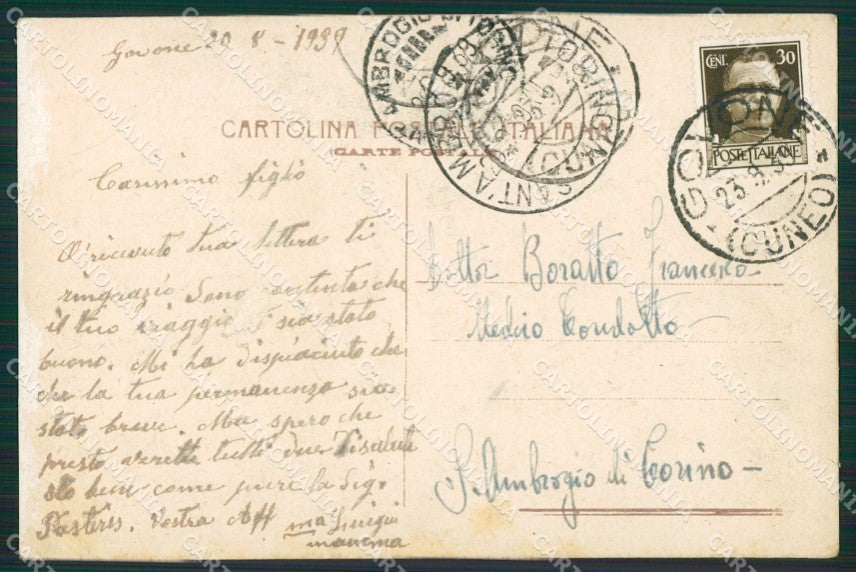 Govone 20 8 - 1939
CENI. 30
POSTE ITALIANE
GOVONE (CUNEO)
23.8.
S. AMBROGIO DI TORINO
SANT'AMBROGIO TORINO
CARTOLINA POSTALE ITALIANA
(CARTE POSTALE)
Carissimo figlio
O ricevuto tua lettera ti
ringrazio sono contenta che
il tuo viaggio sia stato
buono. Mi ha dispiacinto che
che la tua permanenza sia
stata breve. Ma spero che
presto verette tutti due Ti saluto
sto bene come pure la Sig.
Pastéris. Vostra Aff ma Luigia
mamma
Dottor Boratto Francesco
Medico Condotto
S. Ambrogio di Torino -
CARTOLINOMANIA